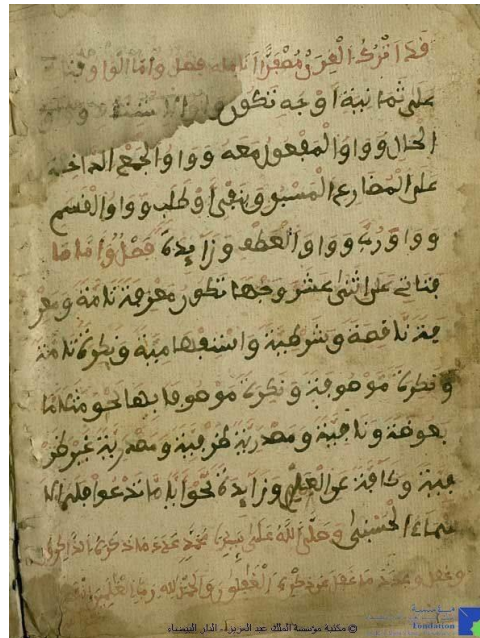 قد اترك الفرن مصفرا انامله فصل واما الواو فتاتي
على ثمانية اوجه تكون واو الاستيناف و واو
الحال وواو المفعول معه وواو الجمع الداخلة
على المضارع المسبوق بنفي او طلب وواو القسم
وواو رب وواو العطف وزايدة فصل واما ما
فتاتي على اثنى عشر وجها تكون معرفة تامة ومعر
فة ناقصة وشرطية واستفهامية ونكرة تامة
ونكرة موصوفة ونكرة موصوفا بها نحو مثلا ما
بعوضة ونافية ومصدرية ظرفية ومصدرية غير ظر
فية وكافة عن العمل وزايدة نحو ايا ما تدعوا فله الا
سماء الحسنى وصلى الله على سيدنا محمد عدد ما ذكره الذاكرون
وغفل عن ذكره الغافلون والحمد لله رب العالمين
مؤسسة
Fondation
© مكتبة مؤسسة الملك عبد العزيز، الدار البيضاء